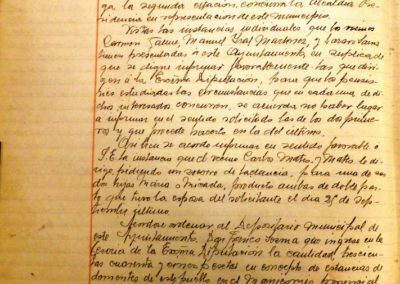 ga la segunda estación, concurra la Alcaldia Pre-
sidencia en representacion de este municipio.
Vistas las instancias individuales que los vecinos
Carmen Manuel Martinez, y
presentadas a este Ayuntamiento en suplica de
que se digne informar favorablemente las que diri-
gen á la Excma Diputación, para que los pensio-
nes estudiadas las circunstancias que en cada una de di-
chos interesados concurren, se acuerda no haber lugar
a informar en el sentido solicitado las de los dos prime-
ros y que procede hacerlo en la del último.
se acordo informar en sentido favorable a
S.E. la instancia que el vecino Carlos Mateo y Mateo le di-
rige pidiendo un socorro de lactancia, para una de sus
dos hijas Maria y producto ambas de doble par-
to que tuvo la esposa del solicitante el dia 25 de Sep-
tiembre último.
ordenar al Depositario municipal de
este Ayuntamiento, Don que ingrese en la
de la Excma Diputación la cantidad
cuarenta y pesetas en concepto de estancias de
dementes de este pueblo en el Manicomio